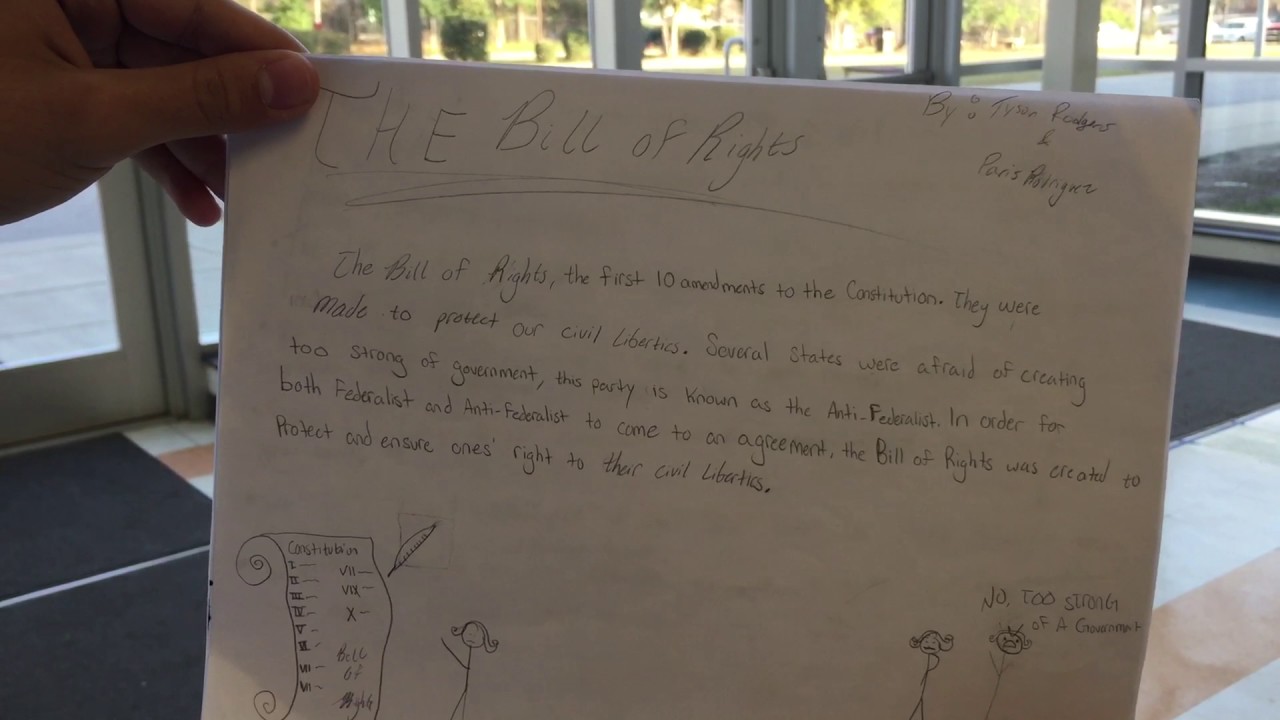 THE Bill of Rights
By: Tyson Rodgers
&
Paris Rodriguez
The Bill of Rights, the first 10 amendments to the Constitution. They were
made to protect our civil liberties. Several states were afraid of creating
too strong of government, this party is known as the Anti-Federalist. In order for
both Federalist and Anti-Federalist to come to an agreement, the Bill of Rights was created to
Protect and ensure ones' right to their civil liberties.
Constitution
I
II
III
IV
V
VI
VII
VII
VII
VIX
X
Bill
of
Rights
NO, TOO STRONG
OF A Government